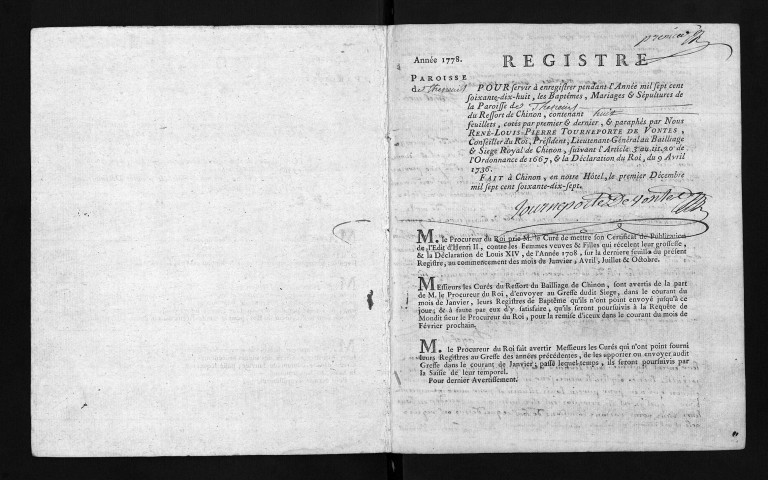 premier
Année 1778.
REGISTRE
PAROISSE
des Theneuil
POUR servir à enregistrer pendant l'Année mil sept cent
soixante-dix-huit, les Baptêmes, Mariages & Sépultures de
la Paroisse des Theneuil
du Ressort de Chinon, contenant huit
feuillets, cotés par premier & dernier, & paraphés par Nous
RENÉ-LOUIS-PIERRE TOURNEPORTE DE VONTES,
Conseiller du Roi, Président, Lieutenant-Général au Bailliage
& Siege Royal de Chinon, suivant l'Article 3 au tit. 20 de
l'Ordonnance de 1667, & la Déclaration du Roi, du 9 Avril
1736.
FAIT à Chinon, en notre Hôtel, le premier Décembre
mil sept cent soixante-dix-sept.
Tourneporte De vontes
M. le Procureur du Roi prie M. le Curé de mettre son Certificat de Publication
de l'Edit d'Henri II, contre les Femmes veuves & Filles qui récelent leur grossesse,
& la Déclaration de Louis XIV, de l'Année 1708, sur la derniere feuille du présent
Registre, au commencement des mois de Janvier, Avril, Juillet & Octobre.
Messieurs les Curés du Ressort du Bailliage de Chinon, sont avertis de la part
de M. le Procureur du Roi, d'envoyer au Greffe dudit Siege, dans le courant du
mois de Janvier, leurs Registres de Baptême qu'ils n'ont point envoyé jusqu'à ce
jour; & à faute par eux d'y satisfaire, qu'ils seront poursuivis à la Requête de
Mondit sieur le Procureur du Roi, pour la remise d'iceux dans le courant du mois de
Février prochain.
M. le Procureur du Roi fait avertir Messieurs les Curés qui n'ont point fourni
leurs Registres au Greffe des années précédentes, de les apporter ou envoyer audit
Greffe dans le courant de Janvier; passé lequel temps, ils seront poursuivis par
la Saisie de leur temporel.
Pour dernier Avertissement.